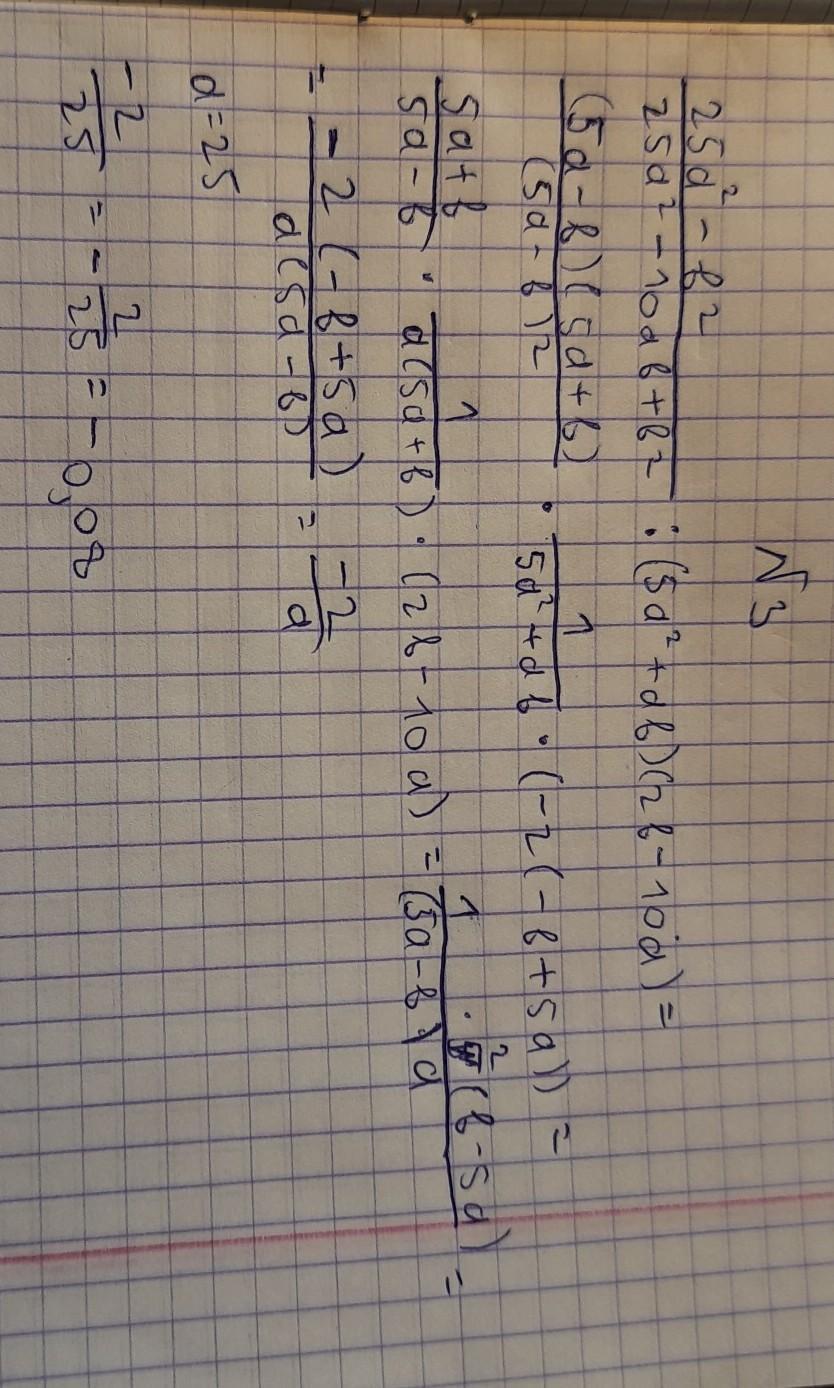 № 3
(25a² - b²)/(25a² - 10ab + b²) : (5a² + ab)(2b - 10a) =
((5a - b)(5a + b))/((5a - b)²) · 1/(5a² + ab) · (-2(-b + 5a)) =
(5a + b)/(5a - b) · 1/(a(5a + b)) · (2b - 10a) = (1 · 2(b - 5a))/((5a - b)a) =
= (-2(-b + 5a))/(a(5a - b)) = (-2)/a
a = 25
(-2)/25 = - 2/25 = - 0,08